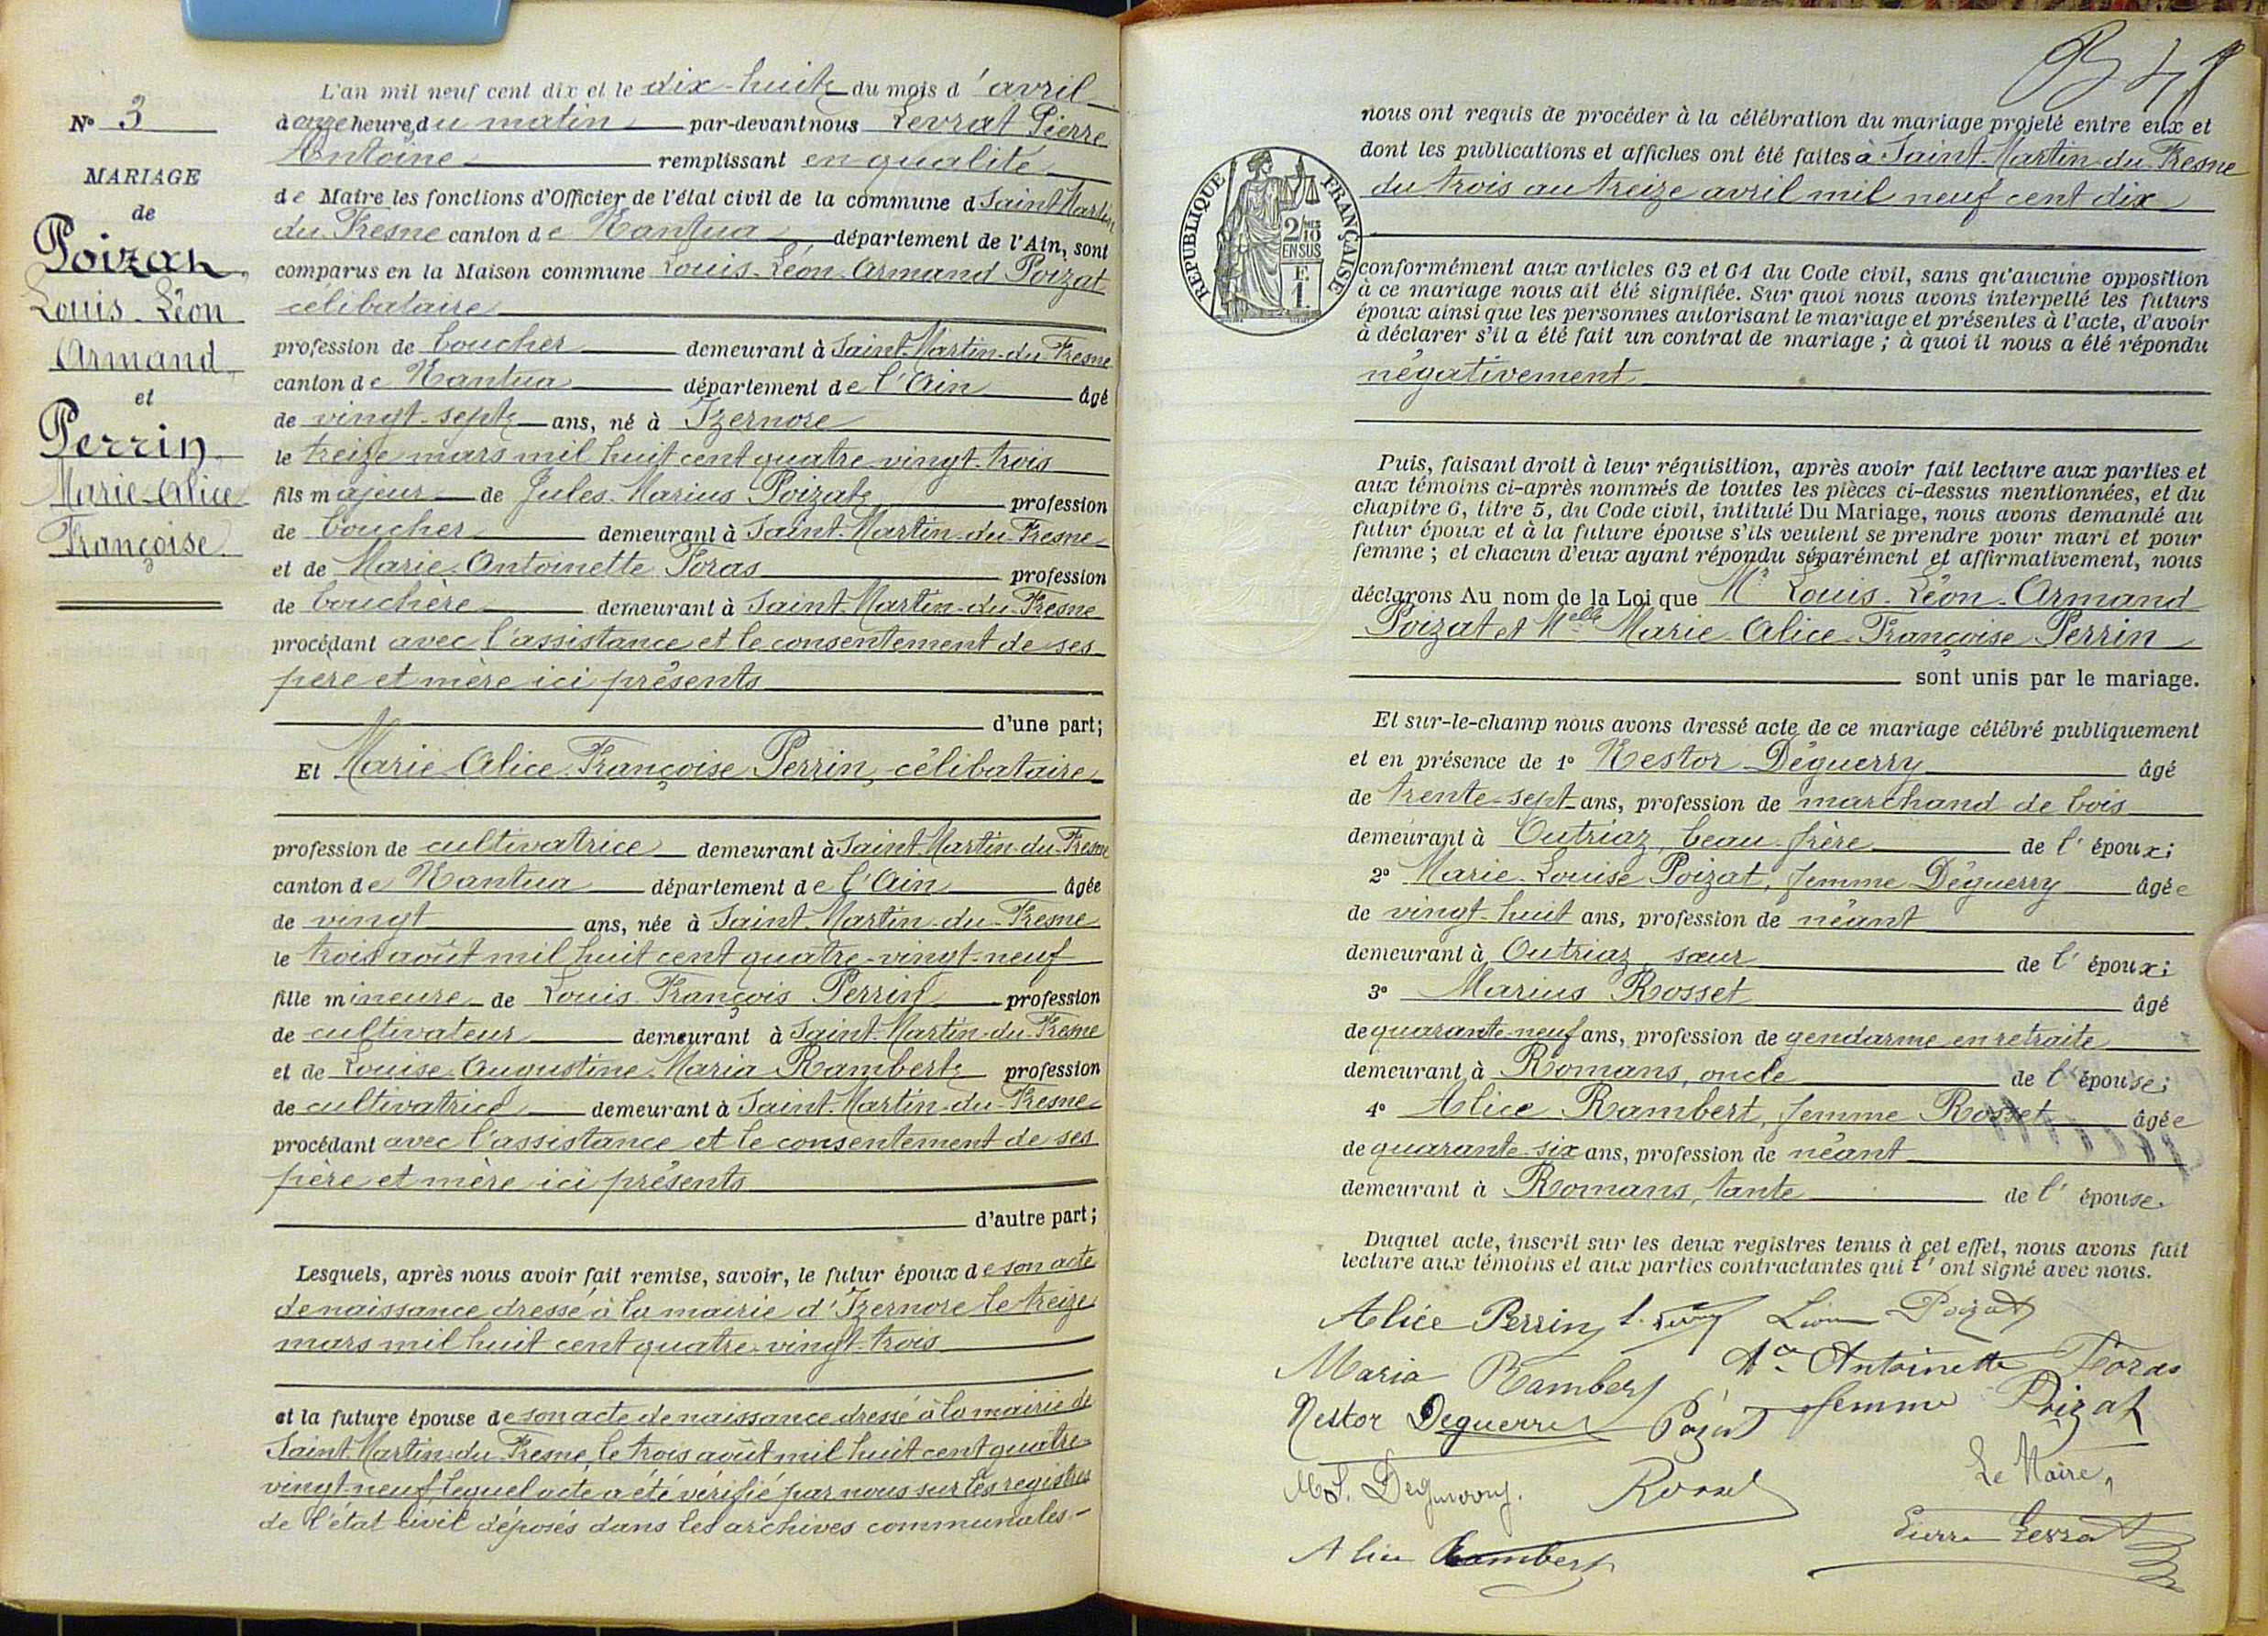 N° 3
MARIAGE
de
Poizat
Louis-Léon
Armand
et
Perrin
Marie-Alice
Françoise
L'an mil neuf cent dix et le dix-huit du mois d'avril
à onze heures du matin par-devant nous Levrat Pierre
Antoine remplissant en qualité
de Maire les fonctions d'Officier de l'état civil de la commune d Saint-Martin
du-Fresne canton de Nantua département de l'Ain, sont
comparus en la Maison commune Louis-Léon-Armand Poizat
célibataire
profession de boucher demeurant à Saint-Martin-du-Fresne
canton de Nantua département de l'Ain âgé
de vingt-sept ans, né à Izernore
le treize mars mil huit cent quatre-vingt-trois
fils majeur de Jules-Marius Poizat profession
de boucher demeurant à Saint-Martin-du-Fresne
et de Marie-Antoinette Foras profession
de bouchère demeurant à Saint-Martin-du-Fresne
procédant avec l'assistance et le consentement de ses
père et mère ici présents
d'une part;
Et Marie-Alice-Françoise Perrin, célibataire
profession de cultivatrice demeurant à Saint-Martin-du-Fresne
canton de Nantua département de l'Ain âgée
de vingt ans, née à Saint-Martin-du-Fresne
le trois août mil huit cent quatre-vingt-neuf
fille mineure de Louis-François Perrin profession
de cultivateur demeurant à Saint-Martin-du-Fresne
et de Louise-Augustine-Maria Rambert profession
de cultivatrice demeurant à Saint-Martin-du-Fresne
procédant avec l'assistance et le consentement de ses
père et mère ici présents
d'autre part;
Lesquels, après nous avoir fait remise, savoir, le futur époux de son acte
de naissance dressé à la mairie d'Izernore le treize
mars mil huit cent quatre-vingt-trois
et la future épouse de son acte de naissance dressé à la mairie de
Saint-Martin-du-Fresne, le trois août mil huit cent quatre-
vingt-neuf, lequel acte a été vérifié par nous sur les registres
de l'état civil déposés dans les archives communales-
nous ont requis de procéder à la célébration du mariage projeté entre eux et
dont les publications et affiches ont été faites à Saint-Martin-du-Fresne
du trois au treize avril mil neuf cent dix
RÉPUBLIQUE FRANÇAISE
2/10 EN SUS
F
1
conformément aux articles 63 et 64 du Code civil, sans qu'aucune opposition
à ce mariage nous ait été signifiée. Sur quoi nous avons interpellé les futurs
époux ainsi que les personnes autorisant le mariage et présentes à l'acte, d'avoir
à déclarer s'il a été fait un contrat de mariage; à quoi il nous a été répondu
négativement
Puis, faisant droit à leur réquisition, après avoir fait lecture aux parties et
aux témoins ci-après nommés de toutes les pièces ci-dessus mentionnées, et du
chapitre 6, titre 5, du Code civil, intitulé Du Mariage, nous avons demandé au
futur époux et à la future épouse s'ils veulent se prendre pour mari et pour
femme; et chacun d'eux ayant répondu séparément et affirmativement, nous
déclarons Au nom de la Loi que Mr Louis-Léon-Armand
Poizat et Melle Marie-Alice-Françoise Perrin
sont unis par le mariage.
Et sur-le-champ nous avons dressé acte de ce mariage célébré publiquement
et en présence de 1° Nestor Déguerry âgé
de trente-sept ans, profession de marchand de bois
demeurant à Outriaz, beau-frère de l'époux;
2° Marie-Louise Poizat, femme Déguerry âgée
de vingt-huit ans, profession de néant
demeurant à Outriaz, sœur de l'époux;
3° Marius Rosset âgé
de quarante-neuf ans, profession de gendarme en retraite
demeurant à Romans, oncle de l'épouse;
4° Alice Rambert, femme Rosset âgée
de quarante-six ans, profession de néant
demeurant à Romans, tante de l'épouse.
Duquel acte, inscrit sur les deux registres tenus à cet effet, nous avons fait
lecture aux témoins et aux parties contractantes qui l'ont signé avec nous.
Alice Perrin Léon Poizat
Maria Rambert Antoinette Foras
Nestor Deguerre Poizat femme Poizat
Le Maire,
Rosset
Pierre Levrat
Alice Rambert